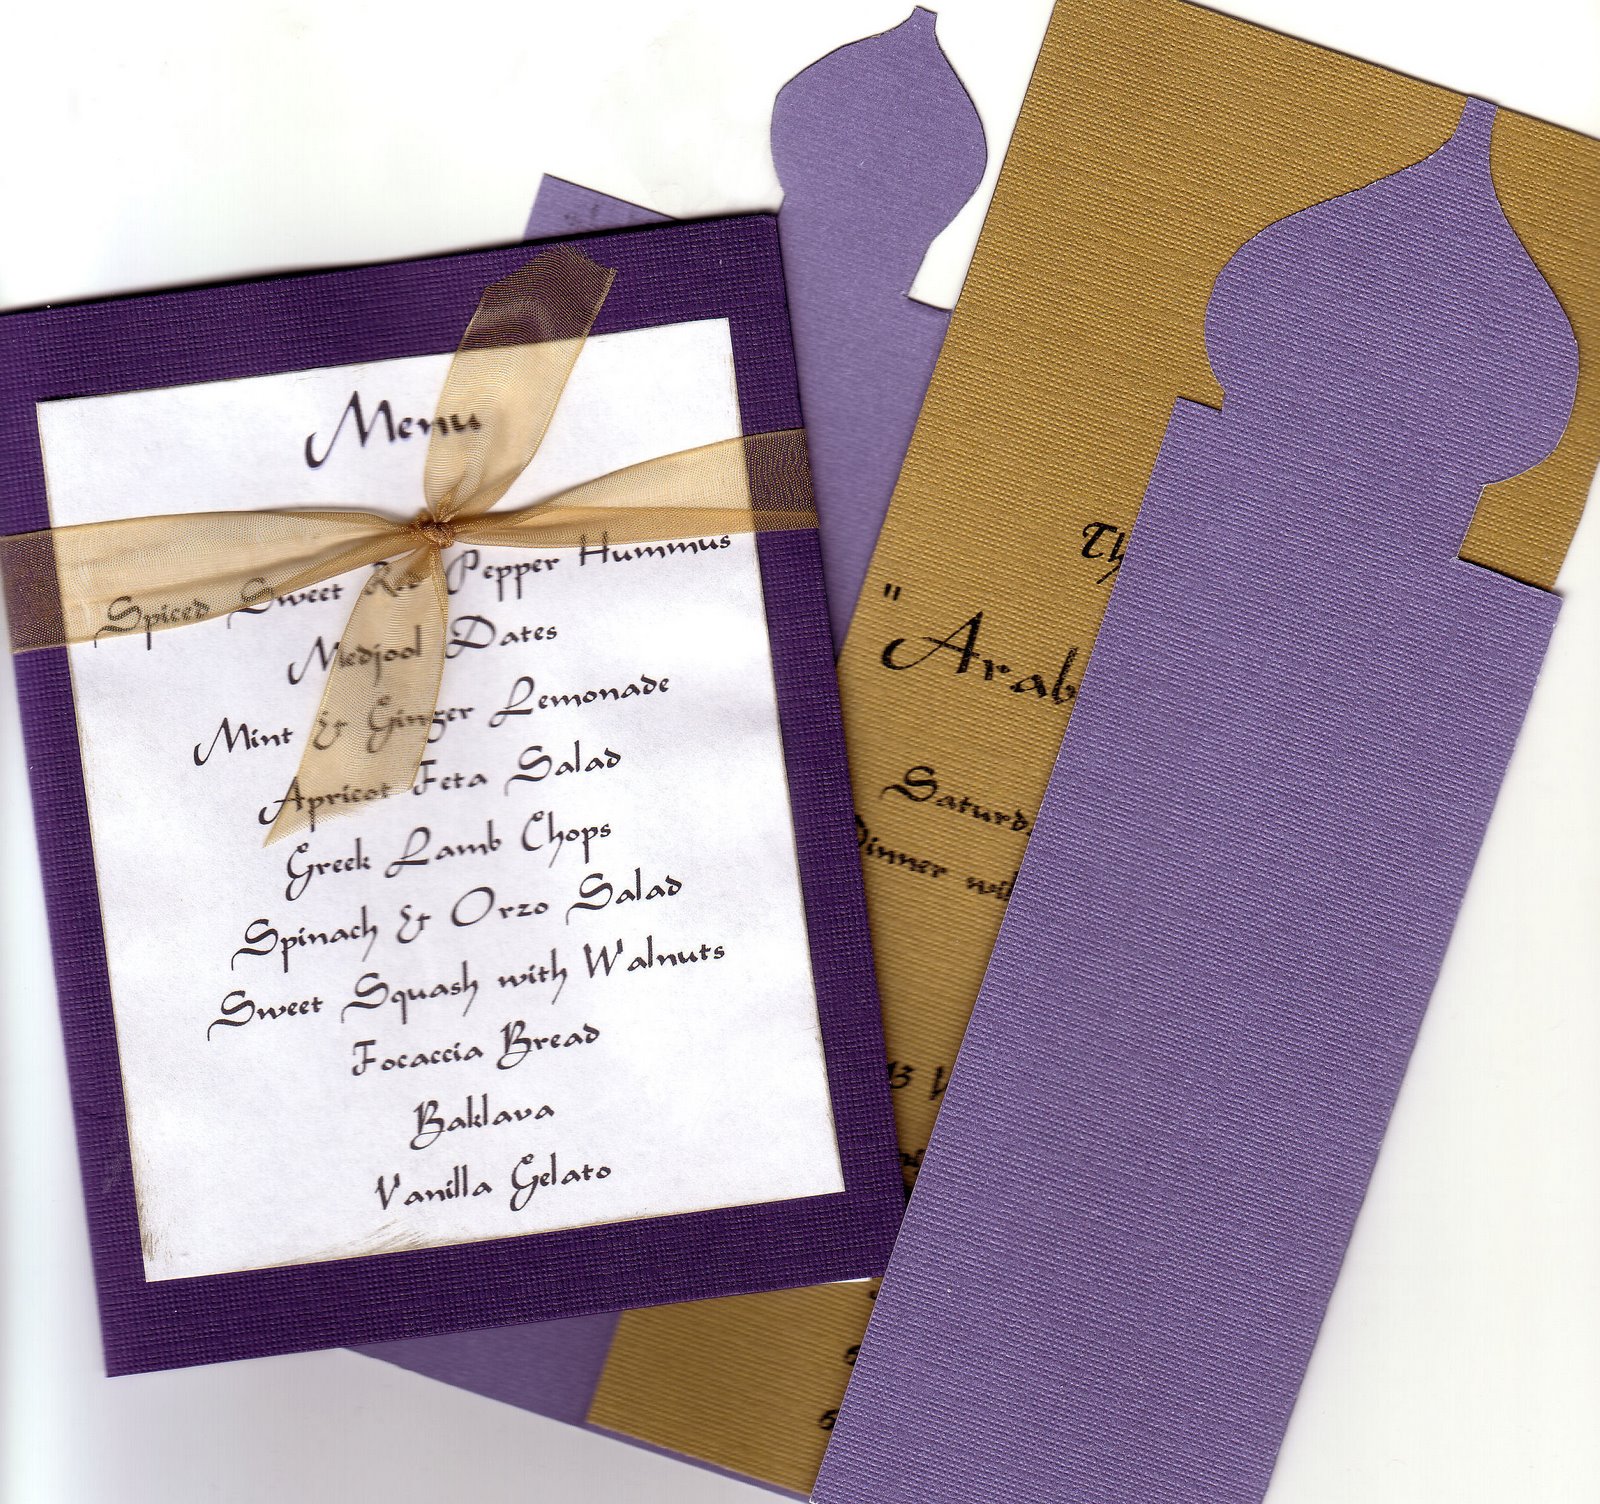 Menu
Spiced Sweet Red Pepper Hummus
Medjool Dates
Mint & Ginger Lemonade
Apricot Feta Salad
Greek Lamb Chops
Spinach & Orzo Salad
Sweet Squash with Walnuts
Focaccia Bread
Baklava
Vanilla Gelato
Th
"Arab
Saturd
Dinner wi